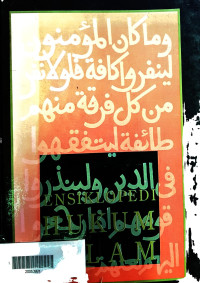 وما كان المؤمنون
لينفروا كافة فلولا نفر
من كل فرقة منهم
طائفة ليتفقهوا
في الدين ولينذروا
ENSIKLOPEDI
قومهم إذا رجعوا
HUKUM
إليهم
ISLAM